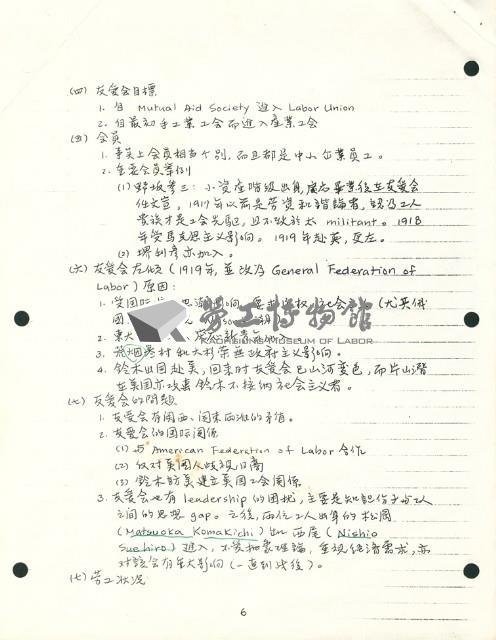 (四) 友愛会目標
1. 自 Mutual Aid Society 進入 Labor Union
2. 自最初手工業工会而進入產業工会
(五) 会員
1. 事实上会員相当个別，而且都是中小企業員工。
2. 重要会員举例
(1) 野坂参三：小資產階級出身，慶応畢業後在友愛会
任文宣，1917年以前是労資和諧論者，認为工人
貴族才是工会先駆，且不致於太 militant。1918
年受马克思主义影响。1919年赴英，更左。
(2) 堺利彦亦加入。
(六) 友愛会左傾 (1919年，並改为 General Federation of
Labor) 原因：
1. 受国际 影响 社会 (尤其俄
國
2. 東大
勞工博物館
KAOHSIUNG MUSEUM OF LABOR
3. 荒烟寒村和大杉荣無政府主义影响。
4. 鈴木出国赴美，回來时友愛会已山河变色，而片山潛
在美国亦攻击鈴木不接纳社会主义者。
(七) 友愛会的問題
1. 友愛会有関西、関東两派的矛盾。
2. 友愛会的国际関係
(1) 与 American Federation of Labor 合作
(2) 反对美国人歧視日裔
(3) 鈴木訪美建立美国工会関係
3. 友愛会也有 leadership 的困扰，主要是知識份子与工人
之間的思想 gap。之後，两位工人出身的松岡
(Matsuoka Komakichi) 西尾 (Nishio
Suehiro) 進入，不爱抽象理論，重視経濟需求，亦
对該会有重大影响 (一直到战後)。
(七) 劳工狀况
6